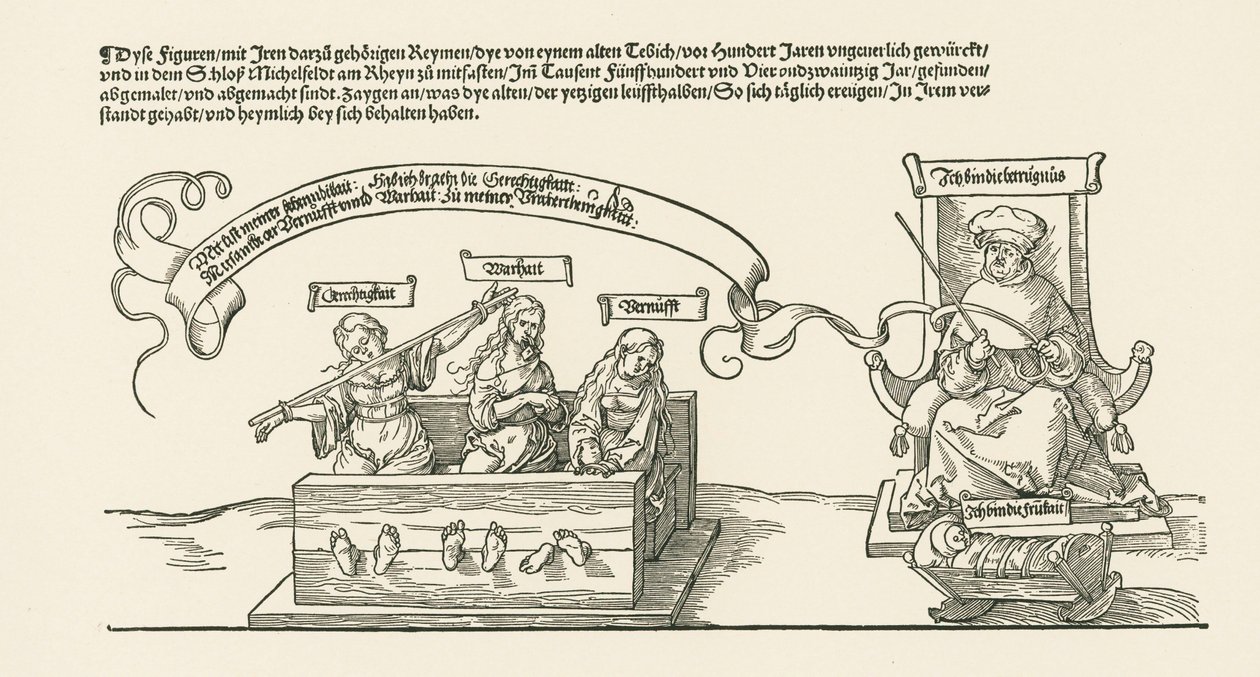 Dyse Figuren/mit Jren darzů gehörigen Reymen/dye von eynem alten Tebich/vor Hundert Jaren vngeuerlich gewürckt/
vnd in dem Schloß Michelfeldt am Rheyn zů mitfasten/Jm̄ Tausent Fünffhundert vnd Vier vndzwaintzig Jar/gefunden/
abgemalet/vnd abgemacht sindt. Zaygen an/was dye alten/der yetzigen leüffthalben/So sich täglich ereügen/Jn Jrem ver⸗
standt gehabt/vnd heymlich bey sich behalten haben.
meiner Hab ich die Gerechtigkaitt:
Vernufft vnnd Warhait: Zu meiner
Ich bin die betrugnüs
Gerechtigkait
Warhait
Vernüfft
Ich bin die frůkait